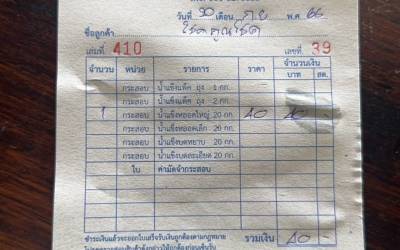 วันที่ 30 เดือน ก.ย พ.ศ 66
ชื่อลูกค้า
เล่มที่ 410 เลขที่ 39
จำนวน หน่วย รายการ ราคา จำนวนเงิน
บาท สต.
กระสอบ น้ำแข็งแพ็ค ถุง
กระสอบ น้ำแข็งแพ็ค ถุง กก.
1 กระสอบ น้ำแข็งหลอดใหญ่ 20 กก. 40 40 -
กระสอบ น้ำแข็งหลอดเล็ก 20 กก.
กระสอบ น้ำแข็งบดหยาบ 20 กก.
กระสอบ น้ำแข็งบดละเอียด 20 กก.
ใบ ค่ามัดจำกระสอบ
ชำระเงินแล้วจะออกใบเสร็จรับเงินถูกต้องตามกฎหมาย
รวมเงิน 40 -